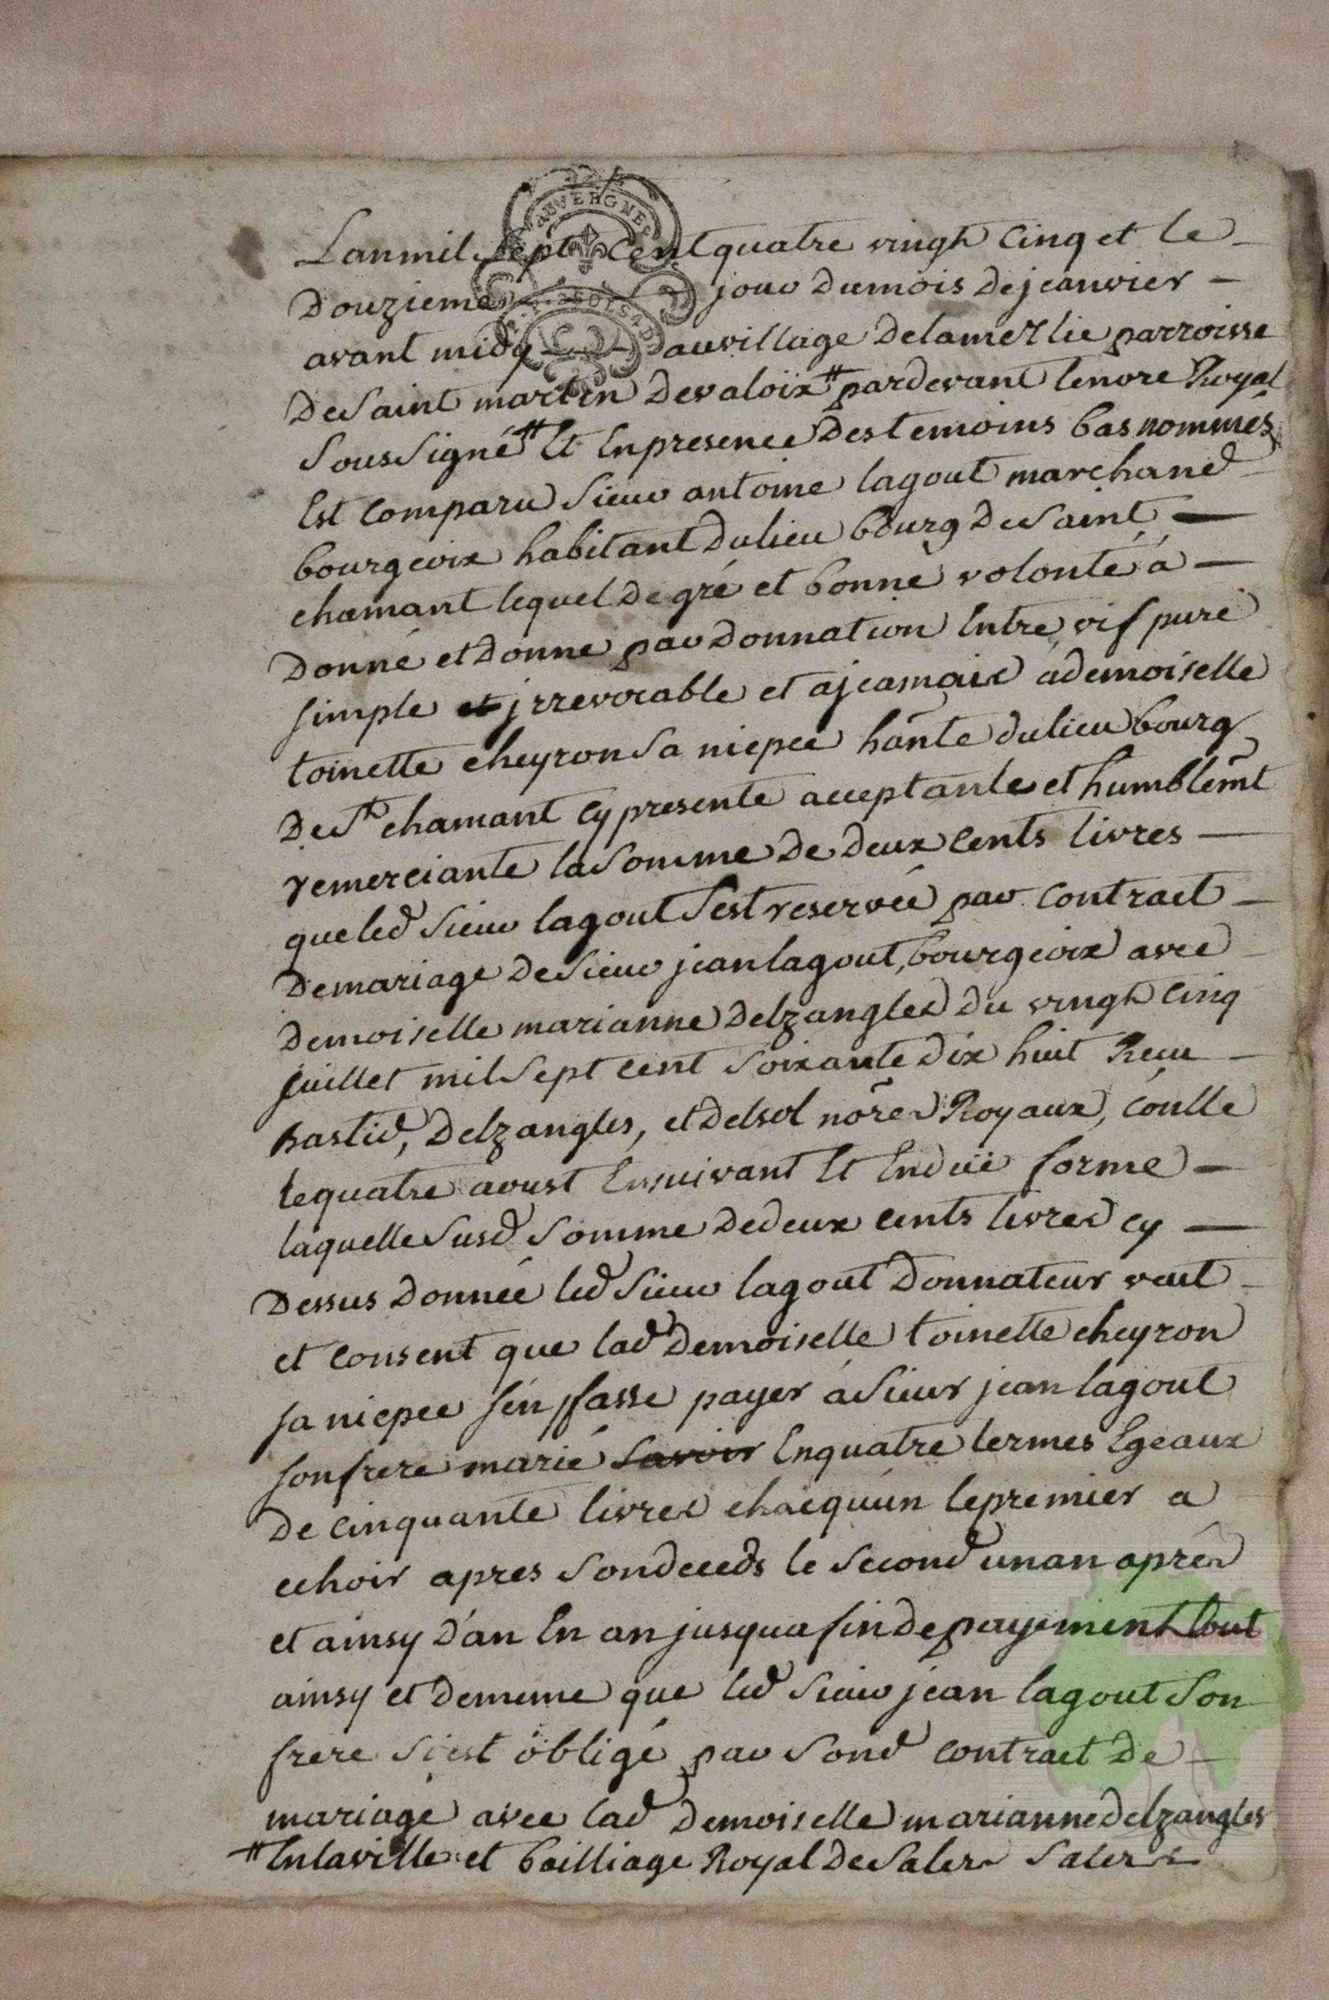 AUVERGNE
2 SOLS 4 D
Lanmil sept cent quatre vingh cinq et le
Douzieme jour dumois dejeanvier
avant midy auvillage delamerlie parroisse
De Saint martin devaloix # pardevant lenore Royal
Soussigné # Et Enpresence des temoins bas nommés
Est comparu Sieur antoine lagout marchand
bourgeoix habitant dulieu bourg de Saint
chamant lequel de gré et bonne volonté á
Donné et donne par donnation Entre vif pure
simple et jrrevocable et ajeamaix ádemoiselle
toinette cheyron Sa niepce hante dulieu bourg
De St chamant cy presente acceptante et humblemt
remerciante la Somme de deux cents livres
que led Sieur lagout Sest reservée par contract
De mariage de Sieur jean lagout, bourgeoix avec
Demoiselle marianne Delzangles du vingh cinq
juillet mil Sept cent Soixante dix huit Recu
bastid, Delzangles, et delsol nores Royaux, cóulle
le quatre avust Ensuivant Et En duë forme
laquelle Susd Somme de deux cents livres cy
Dessus donnée led Sieur lagout Donnateur veut
et consent que lad Demoiselle toinette cheyron
sa niepce sén fasse payer á Sieur jean lagout
son frere marié savoir En quatre termes Egeaux
de cinquante livres chacquún le premier a
echoir apres Son deceds le Second un an aprés
et ainsy d'an En an jusqua fin de payement tout
ainsy et de meme que led Sieur jean lagout Son
frere S'est óbligé par Sond contract de
mariage avec lad Demoiselle marianne delzangles
# En laville et bailliage Royal de Salers Salers